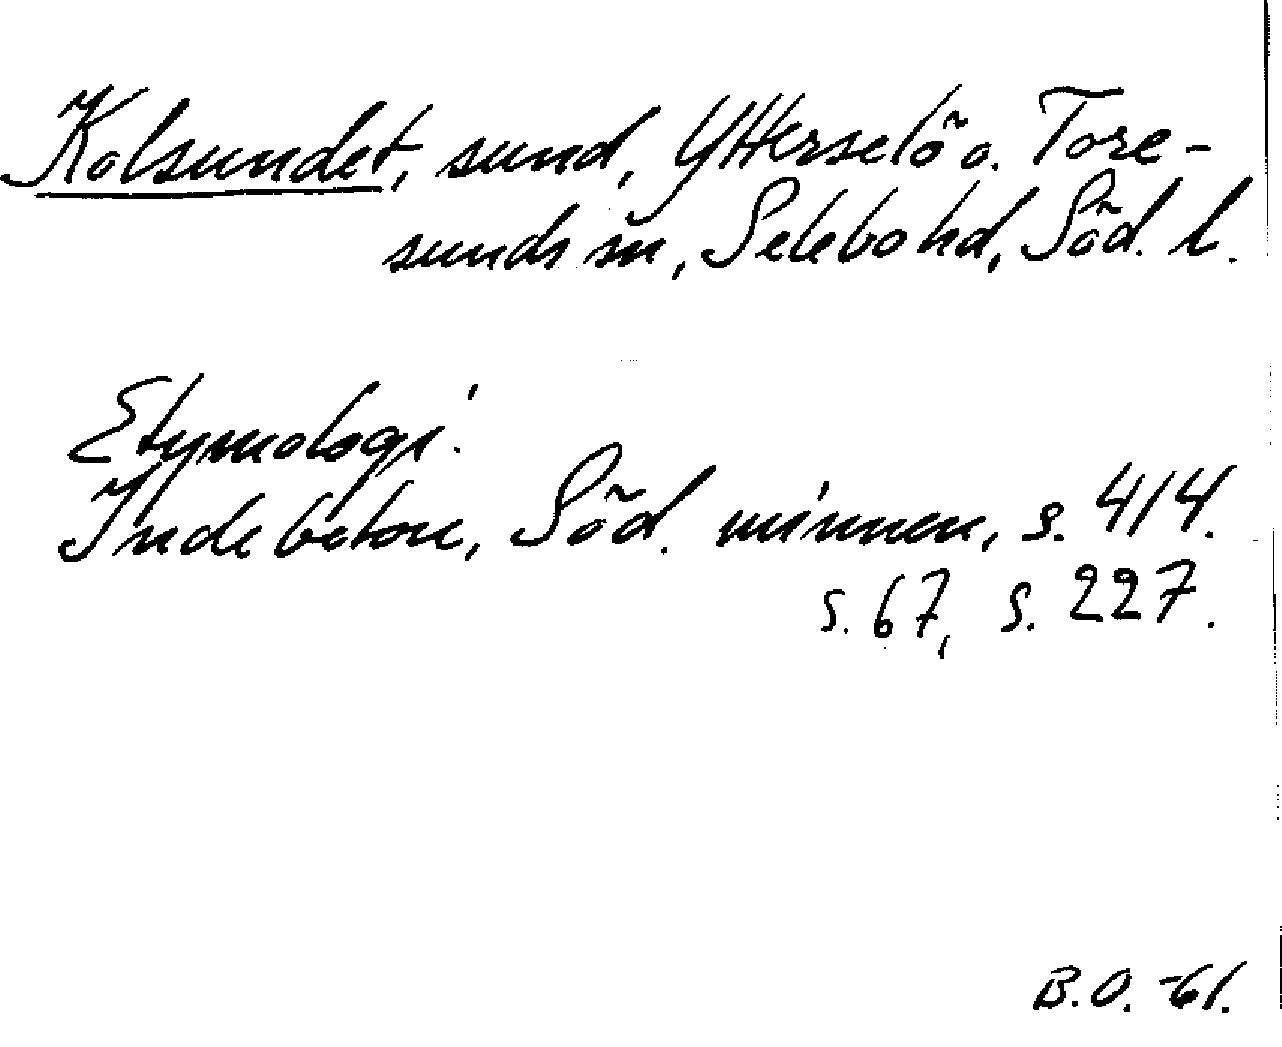 Kolsundet, sund, Ytterselö o. Tore-
sunds sn, Selebo hd, Söd. l.
Etymologi:
Indebetou, Söd. minnen, s. 414.
s. 67, s. 227.
B.O. -61.